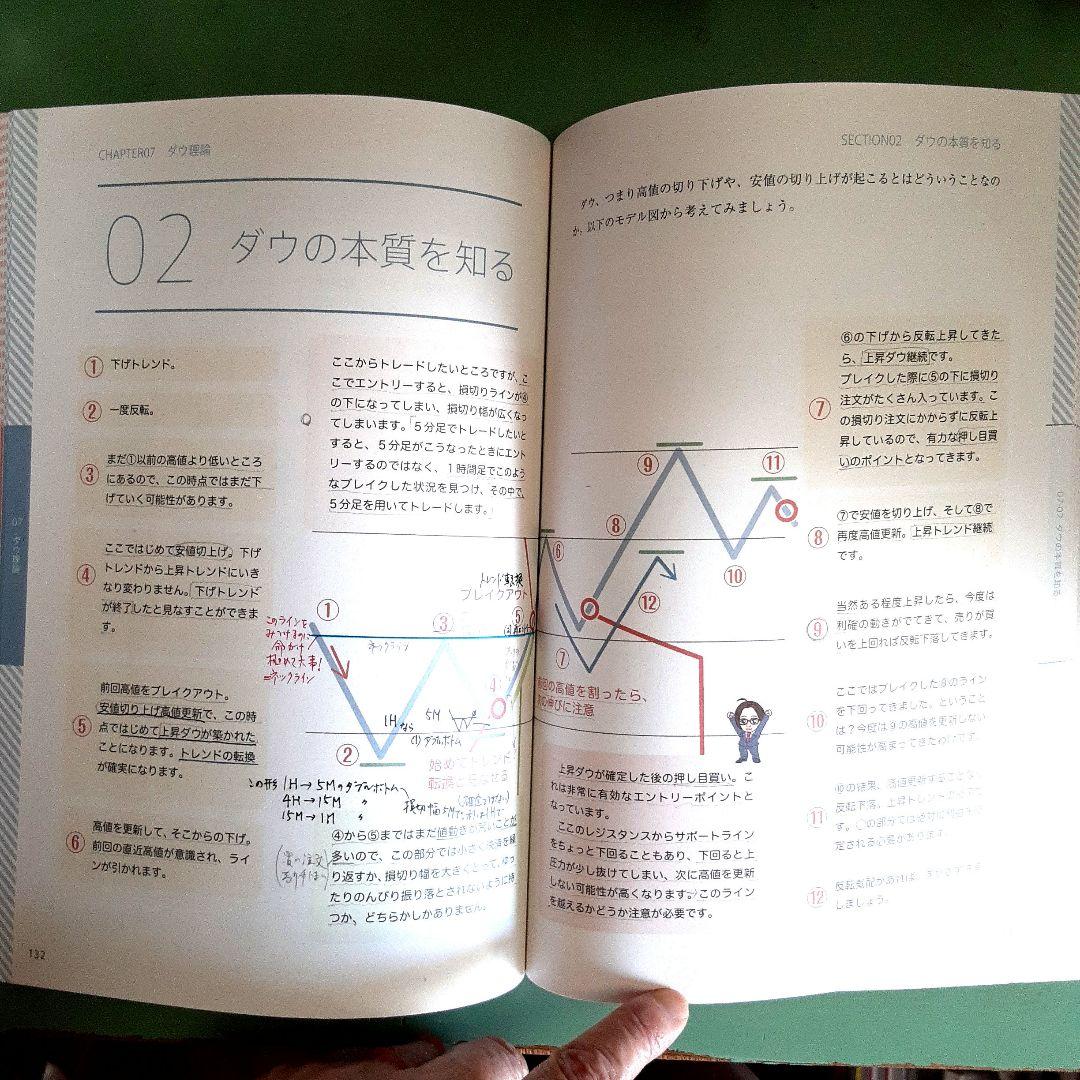 CHAPTER07 ダウ理論
02 ダウの本質を知る
① 下げトレンド。
② 一度反転。
③ まだ①以前の高値より低いところ
にあるので、この時点ではまだ下
げていく可能性があります。
④ ここではじめて安値切上げ。下げ
トレンドから上昇トレンドにいき
なり変わりません。下げトレンド
が終了したと見なすことができま
す。
⑤ 前回高値をブレイクアウト。
安値切り上げ高値更新で、この時
点ではじめて上昇ダウが築かれた
ことになります。トレンドの転換
が確実になります。
⑥ 高値を更新して、そこからの下げ。
前回の直近高値が意識され、ライ
ンが引かれます。
ここからトレードしたいところですが、こ
こでエントリーすると、損切りラインが④
の下になってしまい、損切り幅が広くなっ
てしまいます。5分足でトレードしたいと
すると、5分足がこうなったときにエント
リーするのではなく、1時間足でこのよう
なブレイクした状況を見つけ、その中で、
5分足を用いてトレードします。
トレンド転換
ブレイクアウト
①
③
⑤
このラインを
みつけるのに
命がけ!
極めて大事!
=ネックライン
ネックライン
②
1Hなら
5M
(1) ダブルボトム
始めてトレンド
この形 1H→5Mのダブルボトム
4H→15M 〃
15M→1M 〃
④から⑤まではまだ値動きの
多いので、この部分では小さく決済を繰
り返すか、損切り幅を大きくとって、ゆっ
たりのんびり振り落とされないように待
つか、どちらかしかありません。
132
SECTION02 ダウの本質を知る
ダウ、つまり高値の切り下げや、安値の切り上げが起こるとはどういうことなの
か、以下のモデル図から考えてみましょう。
⑨
⑪
⑧
⑥
⑩
⑫
⑦
前回の高値を割ったら、
次の伸びに注意
上昇ダウが確定した後の押し目買い。こ
れは非常に有効なエントリーポイントと
なっています。
ここのレジスタンスからサポートライン
をちょっと下回ることもあり、下回ると上
圧力が少し抜けてしまい、次に高値を更新
しない可能性が高くなります。このライン
を越えるかどうか注意が必要です。
⑦ ⑥の下げから反転上昇してきた
ら、上昇ダウ継続です。
ブレイクした際に⑤の下に損切り
注文がたくさん入っています。こ
の損切り注文にかからずに反転上
昇しているので、有力な押し目買
いのポイントとなってきます。
⑧ ⑦で安値を切り上げ、そして⑧で
再度高値更新。上昇トレンド継続
です。
⑨ 当然ある程度上昇したら、今度は
利確の動きがでてきて、売りが買
いを上回れば反転下落してきます。
⑩ ここではブレイクした⑧のライン
を下回ってきました。ということ
は?今度は⑨の高値を更新しない
可能性が高まってきたわけです。
⑪ ⑩の結果、高値更新することなく
反転下落。上昇トレンド
⑫
しましょう。
07-02 ダウの本質を知る
07 ダウ理論